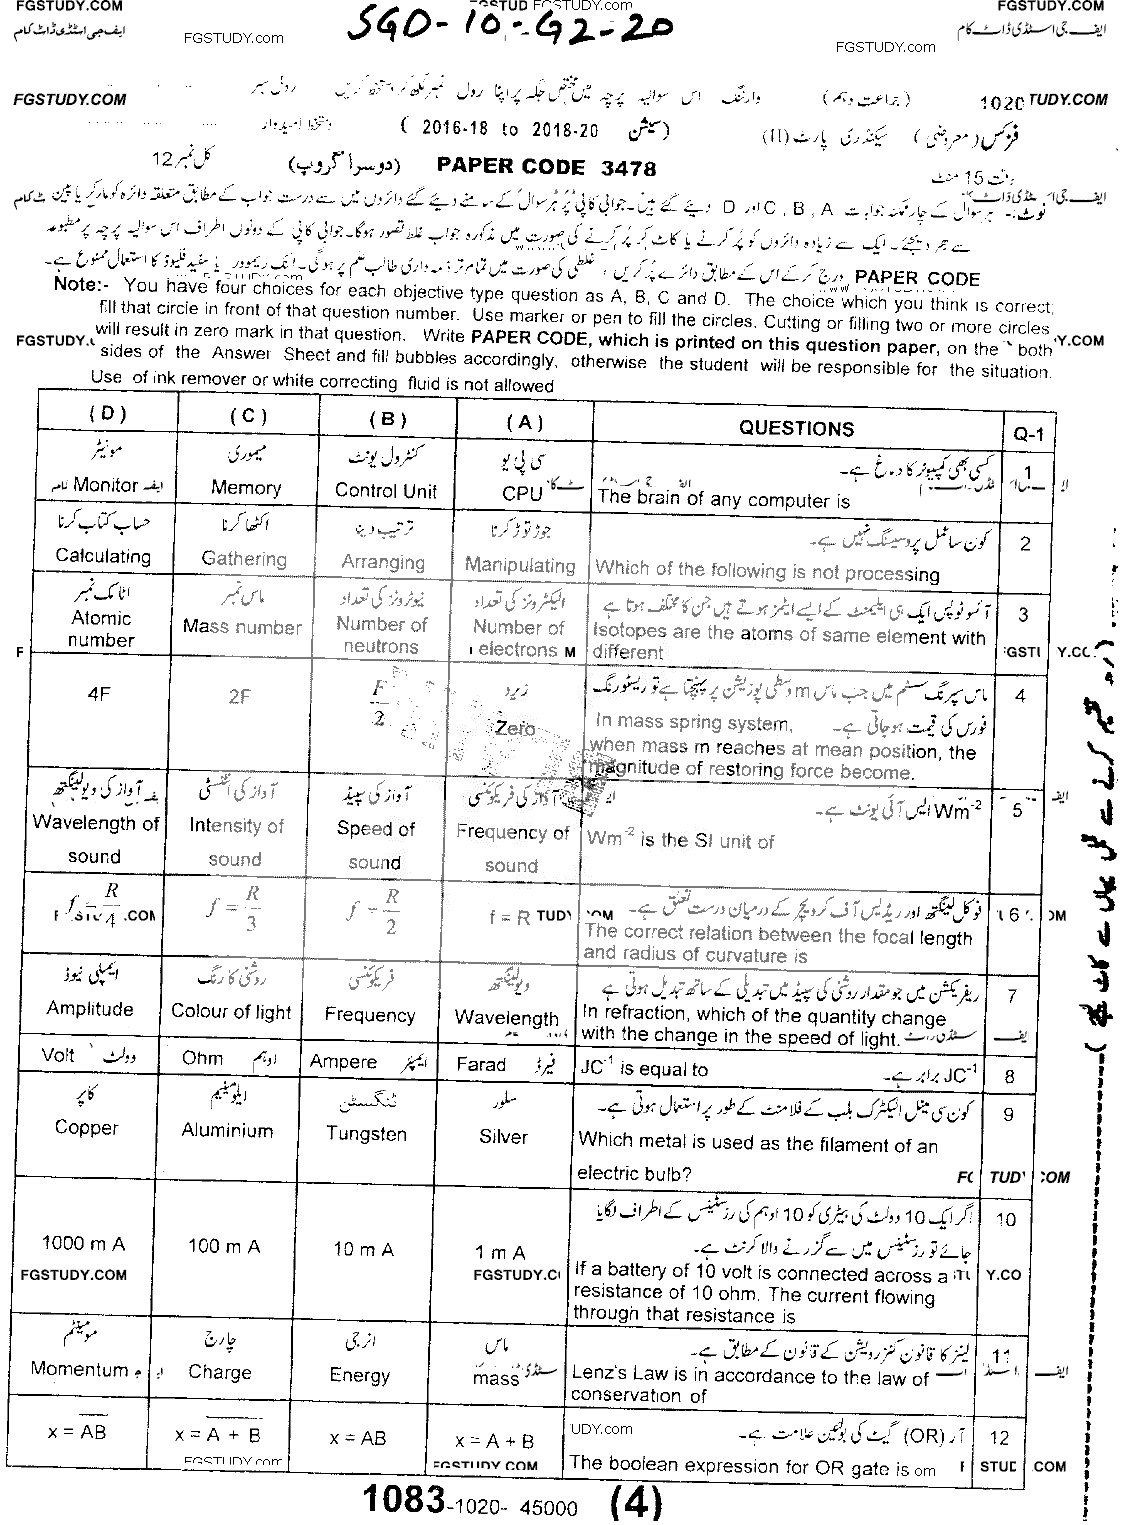 FGSTUDY.COM
FGSTUDY.com
FGSTUDY.COM
ایف جی اسٹڈی ڈاٹ کام
FGSTUDY.com
SGD-10-G2-20
FGSTUDY.com
ایف جی اسٹڈی ڈاٹ کام
FGSTUDY.COM
وارننگ اس سوالیہ پرچہ میں مختص جگہ پر اپنا رول نمبر لکھ کر دستخط کریں
(جماعت دہم)
1020
TUDY.COM
دستخط امیدوار
( 2016-18 to 2018-20 سیشن)
فزکس (معروضی) سیکنڈری پارٹ (II)
کل نمبر 12
(دوسرا گروپ)
PAPER CODE 3478
وقت 15 منٹ
نوٹ:- ہر سوال کے چار ممکنہ جوابات A , B , C اور D دیئے گئے ہیں۔ جوابی کاپی پر ہر سوال کے سامنے دیئے گئے دائروں میں سے درست جواب کے مطابق متعلقہ دائرہ کو مارکر یا پین
سے بھر دیجئے۔ ایک سے زیادہ دائروں کو پُر کرنے یا کاٹ کر پُر کرنے کی صورت میں مذکورہ جواب غلط تصور ہوگا۔ جوابی کاپی کے دونوں اطراف اس سوالیہ پرچہ پر مطبوعہ
PAPER CODE درج کر کے اس کے مطابق دائرے پُر کریں، غلطی کی صورت میں تمام تر ذمہ داری طالب علم پر ہوگی۔ انک ریموور یا سفید فلیوڈ کا استعمال ممنوع ہے۔
Note:- You have four choices for each objective type question as A, B, C and D. The choice which you think is correct;
fill that circle in front of that question number. Use marker or pen to fill the circles. Cutting or filling two or more circles
will result in zero mark in that question. Write PAPER CODE, which is printed on this question paper, on the both
sides of the Answer Sheet and fill bubbles accordingly, otherwise the student will be responsible for the situation.
Use of ink remover or white correcting fluid is not allowed
(D) (C) (B) (A) QUESTIONS Q-1
مونیٹر میموری کنٹرول یونٹ سی پی یو کسی بھی کمپیوٹر کا دماغ ہے۔ 1
Monitor Memory Control Unit CPU The brain of any computer is
حساب کتاب کرنا اکٹھا کرنا ترتیب دینا جوڑ توڑ کرنا کون سا عمل پروسیسنگ نہیں ہے۔ 2
Calculating Gathering Arranging Manipulating Which of the following is not processing
اٹامک نمبر ماس نمبر نیوٹرونز کی تعداد الیکٹرونز کی تعداد آئسوٹوپس ایک ہی ایلیمنٹ کے ایسے ایٹمز ہوتے ہیں جن کا مختلف ہوتا ہے 3
Atomic Mass number Number of Number of Isotopes are the atoms of same element with
number neutrons electrons different
4F 2F F/2 زیرو ماس سپرنگ سسٹم میں جب ماس m وسطی پوزیشن پر پہنچتا ہے تو ریسٹورنگ 4
فورس کی قیمت ہو جاتی ہے۔
Zero In mass spring system,
when mass m reaches at mean position, the
magnitude of restoring force become.
آواز کی ویولینگتھ آواز کی انٹنسٹی آواز کی سپیڈ آواز کی فریکوئنسی Wm⁻² ایس آئی یونٹ ہے۔ 5
Wavelength of Intensity of Speed of Frequency of Wm⁻² is the SI unit of
sound sound sound sound
f = R/4 f = R/3 f = R/2 f = R فوکل لینگتھ اور ریڈیس آف کرویچر کے درمیان درست تعلق ہے۔ 6
The correct relation between the focal length
and radius of curvature is
ایمپلی ٹیوڈ روشنی کا رنگ فریکوئنسی ویولینگتھ ریفریکشن میں جو مقدار روشنی کی سپیڈ میں تبدیلی کے ساتھ تبدیل ہوتی ہے 7
Amplitude Colour of light Frequency Wavelength In refraction, which of the quantity change
with the change in the speed of light.
Volt وولٹ Ohm اوہم Ampere ایمپئر Farad فیرڈ JC⁻¹ is equal to JC⁻¹ برابر ہے۔ 8
کاپر ایلومینیم ٹنگسٹن سلور کون سی میٹل الیکٹرک بلب کے فلامنٹ کے طور پر استعمال ہوتی ہے۔ 9
Copper Aluminium Tungsten Silver Which metal is used as the filament of an
electric bulb?
اگر ایک 10 وولٹ کی بیٹری کو 10 اوہم کی رزسٹینس کے اطراف لگایا 10
جائے تو رزسٹینس میں سے گزرنے والا کرنٹ ہے۔
1000 m A 100 m A 10 m A 1 m A If a battery of 10 volt is connected across a
FGSTUDY.COM
resistance of 10 ohm. The current flowing
through that resistance is
مومینٹم چارج انرجی ماس لینز کا قانون کنزرویشن کے قانون کے مطابق ہے۔ 11
Momentum Charge Energy mass Lenz's Law is in accordance to the law of
conservation of
x = A̅B̅ x = A̅ ̅+̅ ̅B̅ x = AB x = A + B آر (OR) گیٹ کی بولین علامت ہے۔ 12
The boolean expression for OR gate is
1083-1020- 45000 (4)